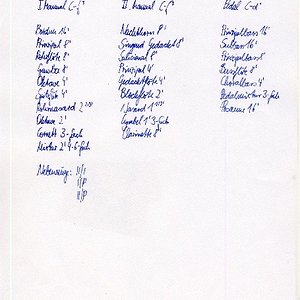 I Manual C-g³
Bordun 16'
Prinzipal 8'
Rohrflöte 8'
Gamba 8'
Oktave 4'
Spitzflöte 4'
Rohrnasard 2 2/3'
Oktave 2'
Cornett 3-fach
Mixtur 2' 4-6-fach
II. Manual C-g³
Nachthorn 8'
Singend Gedackt 8'
Salicional 8'
Prinzipal 4'
Gedackt 4'
Blockflöte 2'
Nasard 1 1/3'
Cymbel 1' 3-fach
Clarinette 8'
Pedal C-
Prinzipalbass 16'
Subbass 16'
Prinzipalbass 8'
Bassflöte 8'
Choralbass 4'
Pedalmixtur 3-fach
Posaune 16'
Nebenzüge: II/I
I/P
II/P